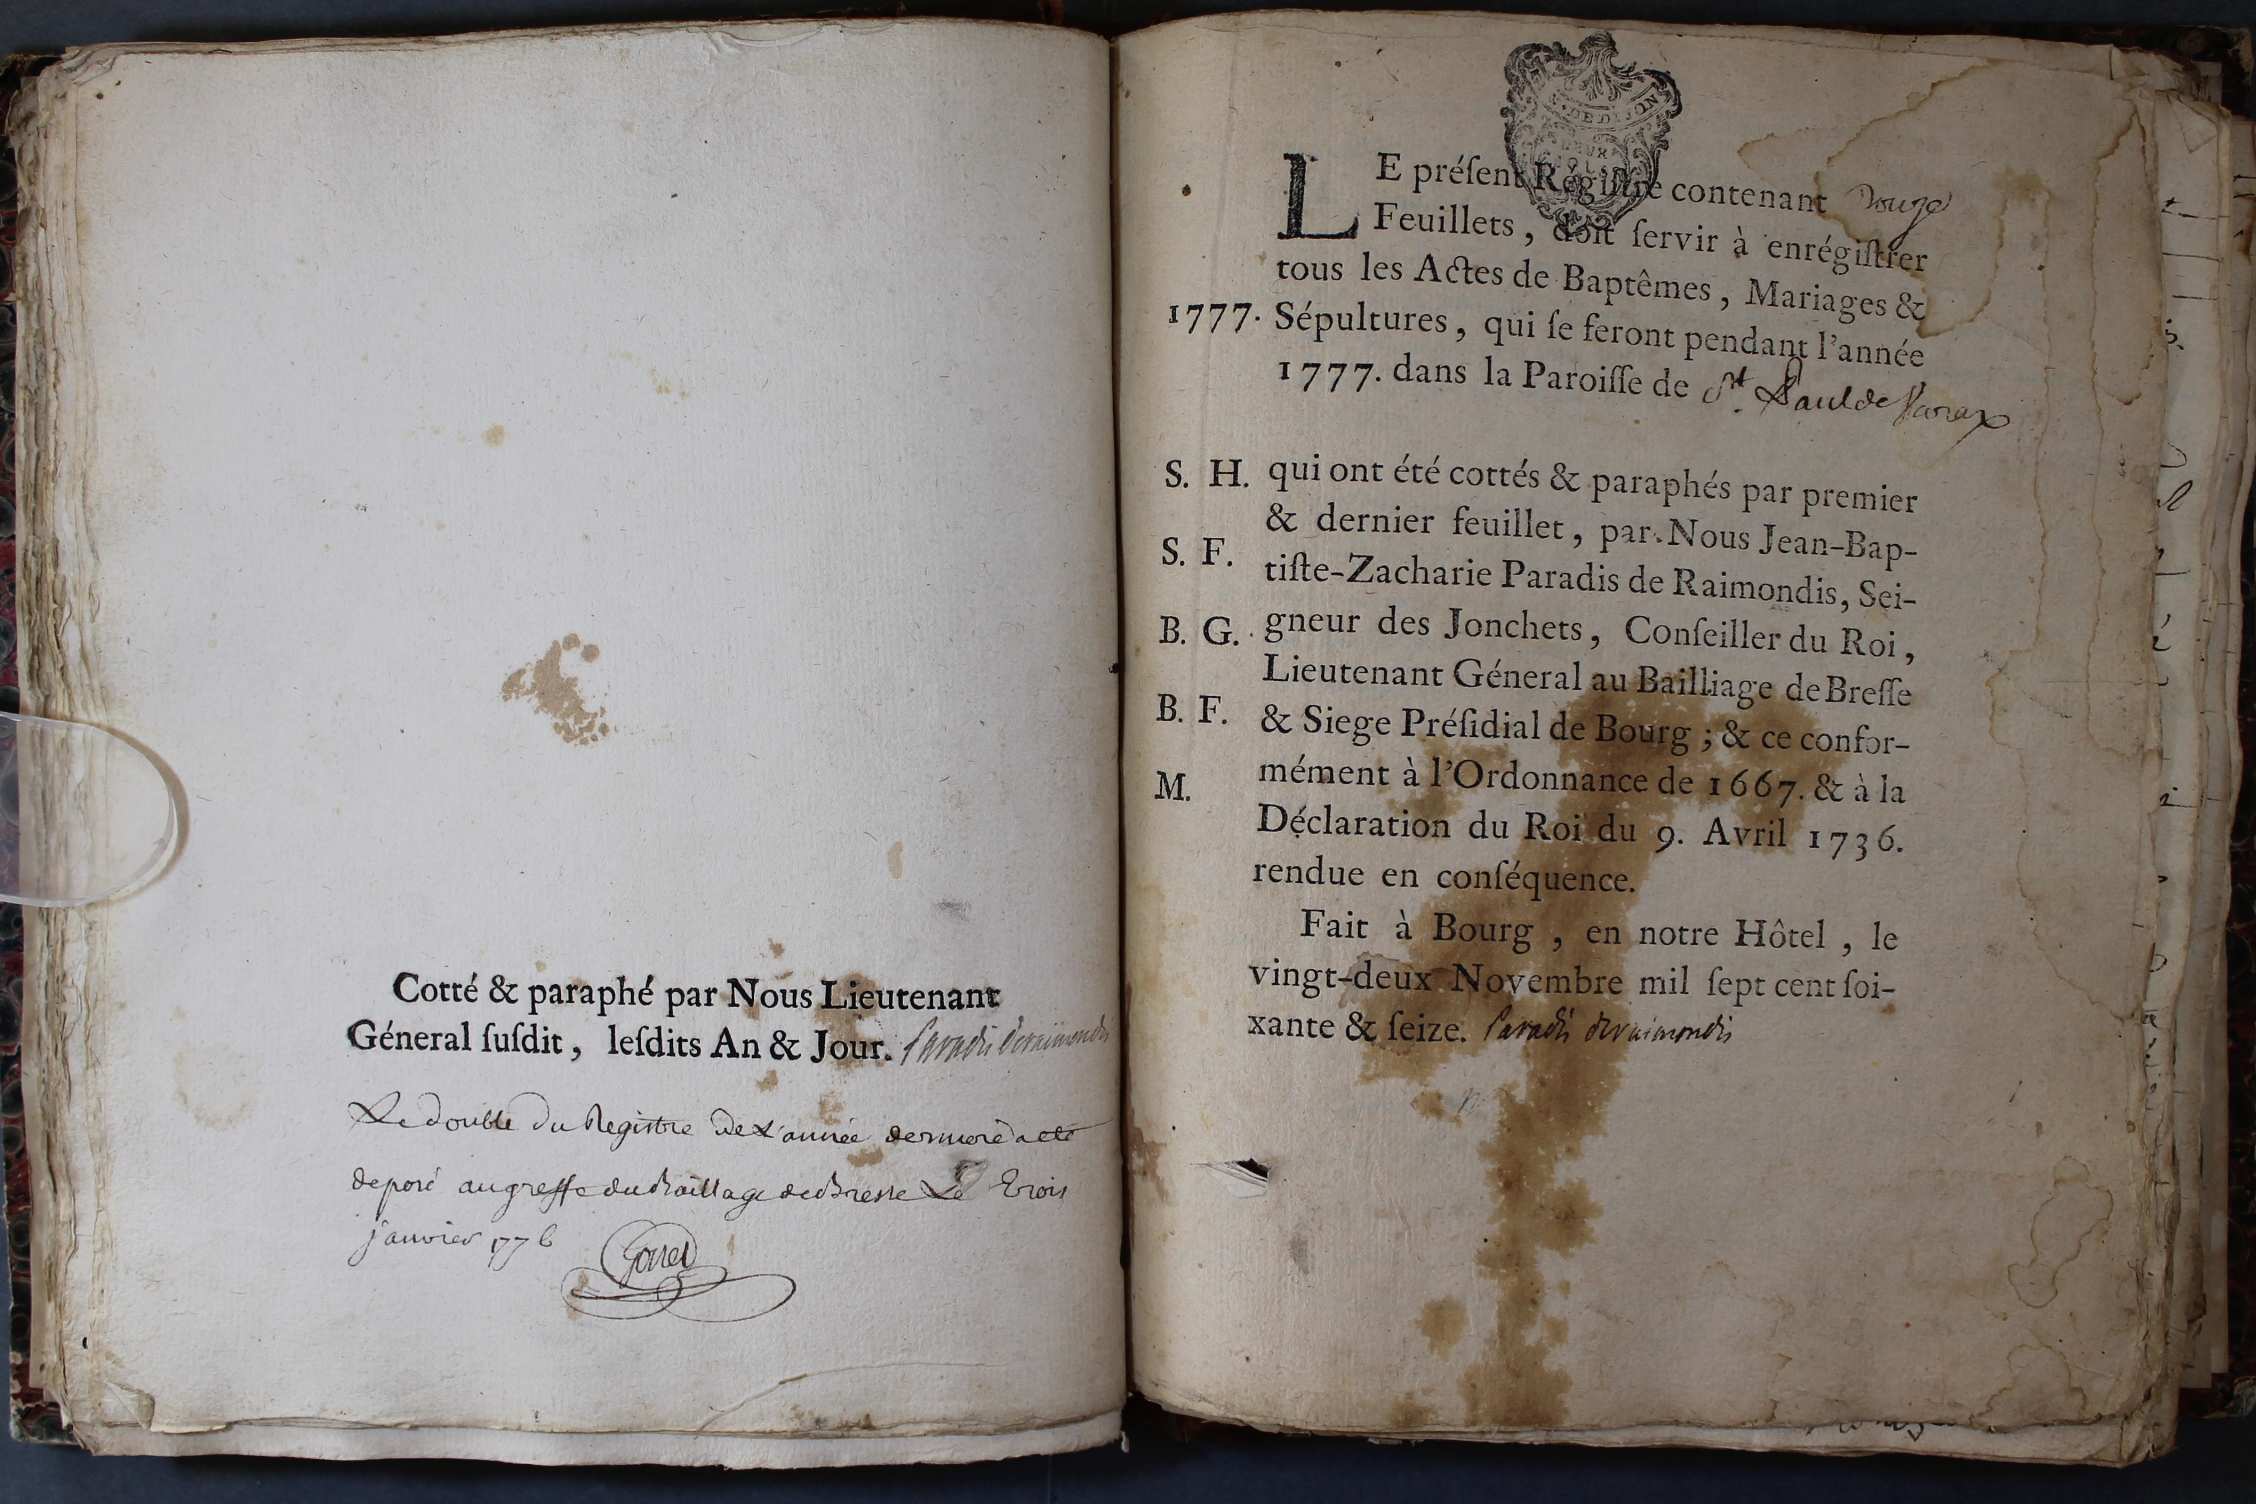 Cotté & paraphé par Nous Lieutenant
Géneral ſuſdit, leſdits An & Jour. Paradis deraimondis
Le double du Registre de L'année derniere a eté
deposé au greffe du Bailliage de Bresse Le trois
janvier 1776
DE DIJON
LE préſent Régiſtre contenant douze
Feuillets, doit ſervir à enrégiſtrer
tous les Actes de Baptêmes, Mariages &
1777. Sépultures, qui ſe feront pendant l'année
1777. dans la Paroiſſe de St. Paul de Varax
S. H. qui ont été cottés & paraphés par premier
& dernier feuillet, par Nous Jean-Bap-
S. F. tiſte-Zacharie Paradis de Raimondis, Sei-
B. G. gneur des Jonchets, Conſeiller du Roi,
Lieutenant Géneral au Bailliage de Breſſe
B. F. & Siege Préſidial de Bourg; & ce confor-
M. mément à l'Ordonnance de 1667. & à la
Déclaration du Roi du 9. Avril 1736.
rendue en conſéquence.
Fait à Bourg, en notre Hôtel, le
vingt-deux Novembre mil ſept cent ſoi-
xante & ſeize. Paradis deraimondis